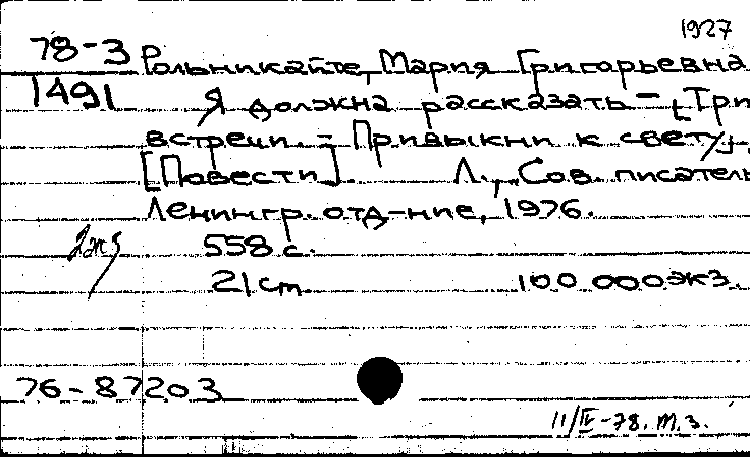 1927
78-3 Рольникайте, Мария Григорьевна
1491 Я должна рассказать - [Три
встречи. - Привыкни к свету].
[Повести]. Л., Сов. писатель
Ленингр. отд-ние, 1976.
2жз 558 с.
21 см. 100 000 экз.
76-87203
11/IV-78. т.з.